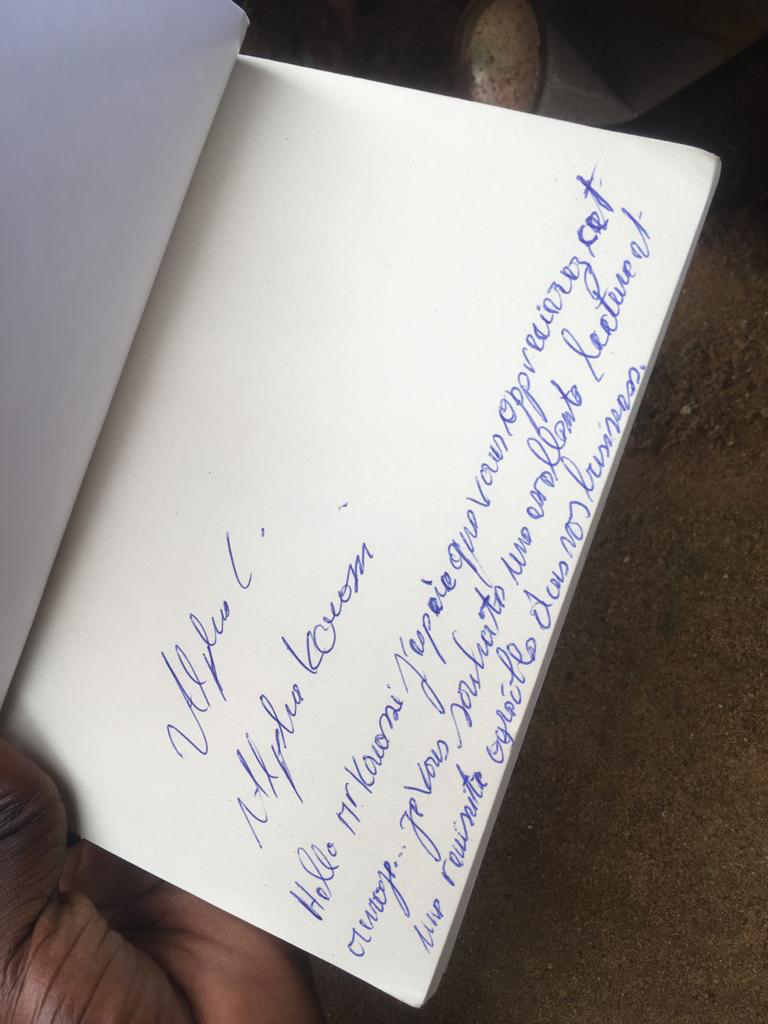 Alpha C.
Alpha Kourossi
Hello Mr Kourossi j'espère que vous apprécierez cet
ouvrage... je vous souhaite une excellente lecture et
une réussite agréable dans vos business.